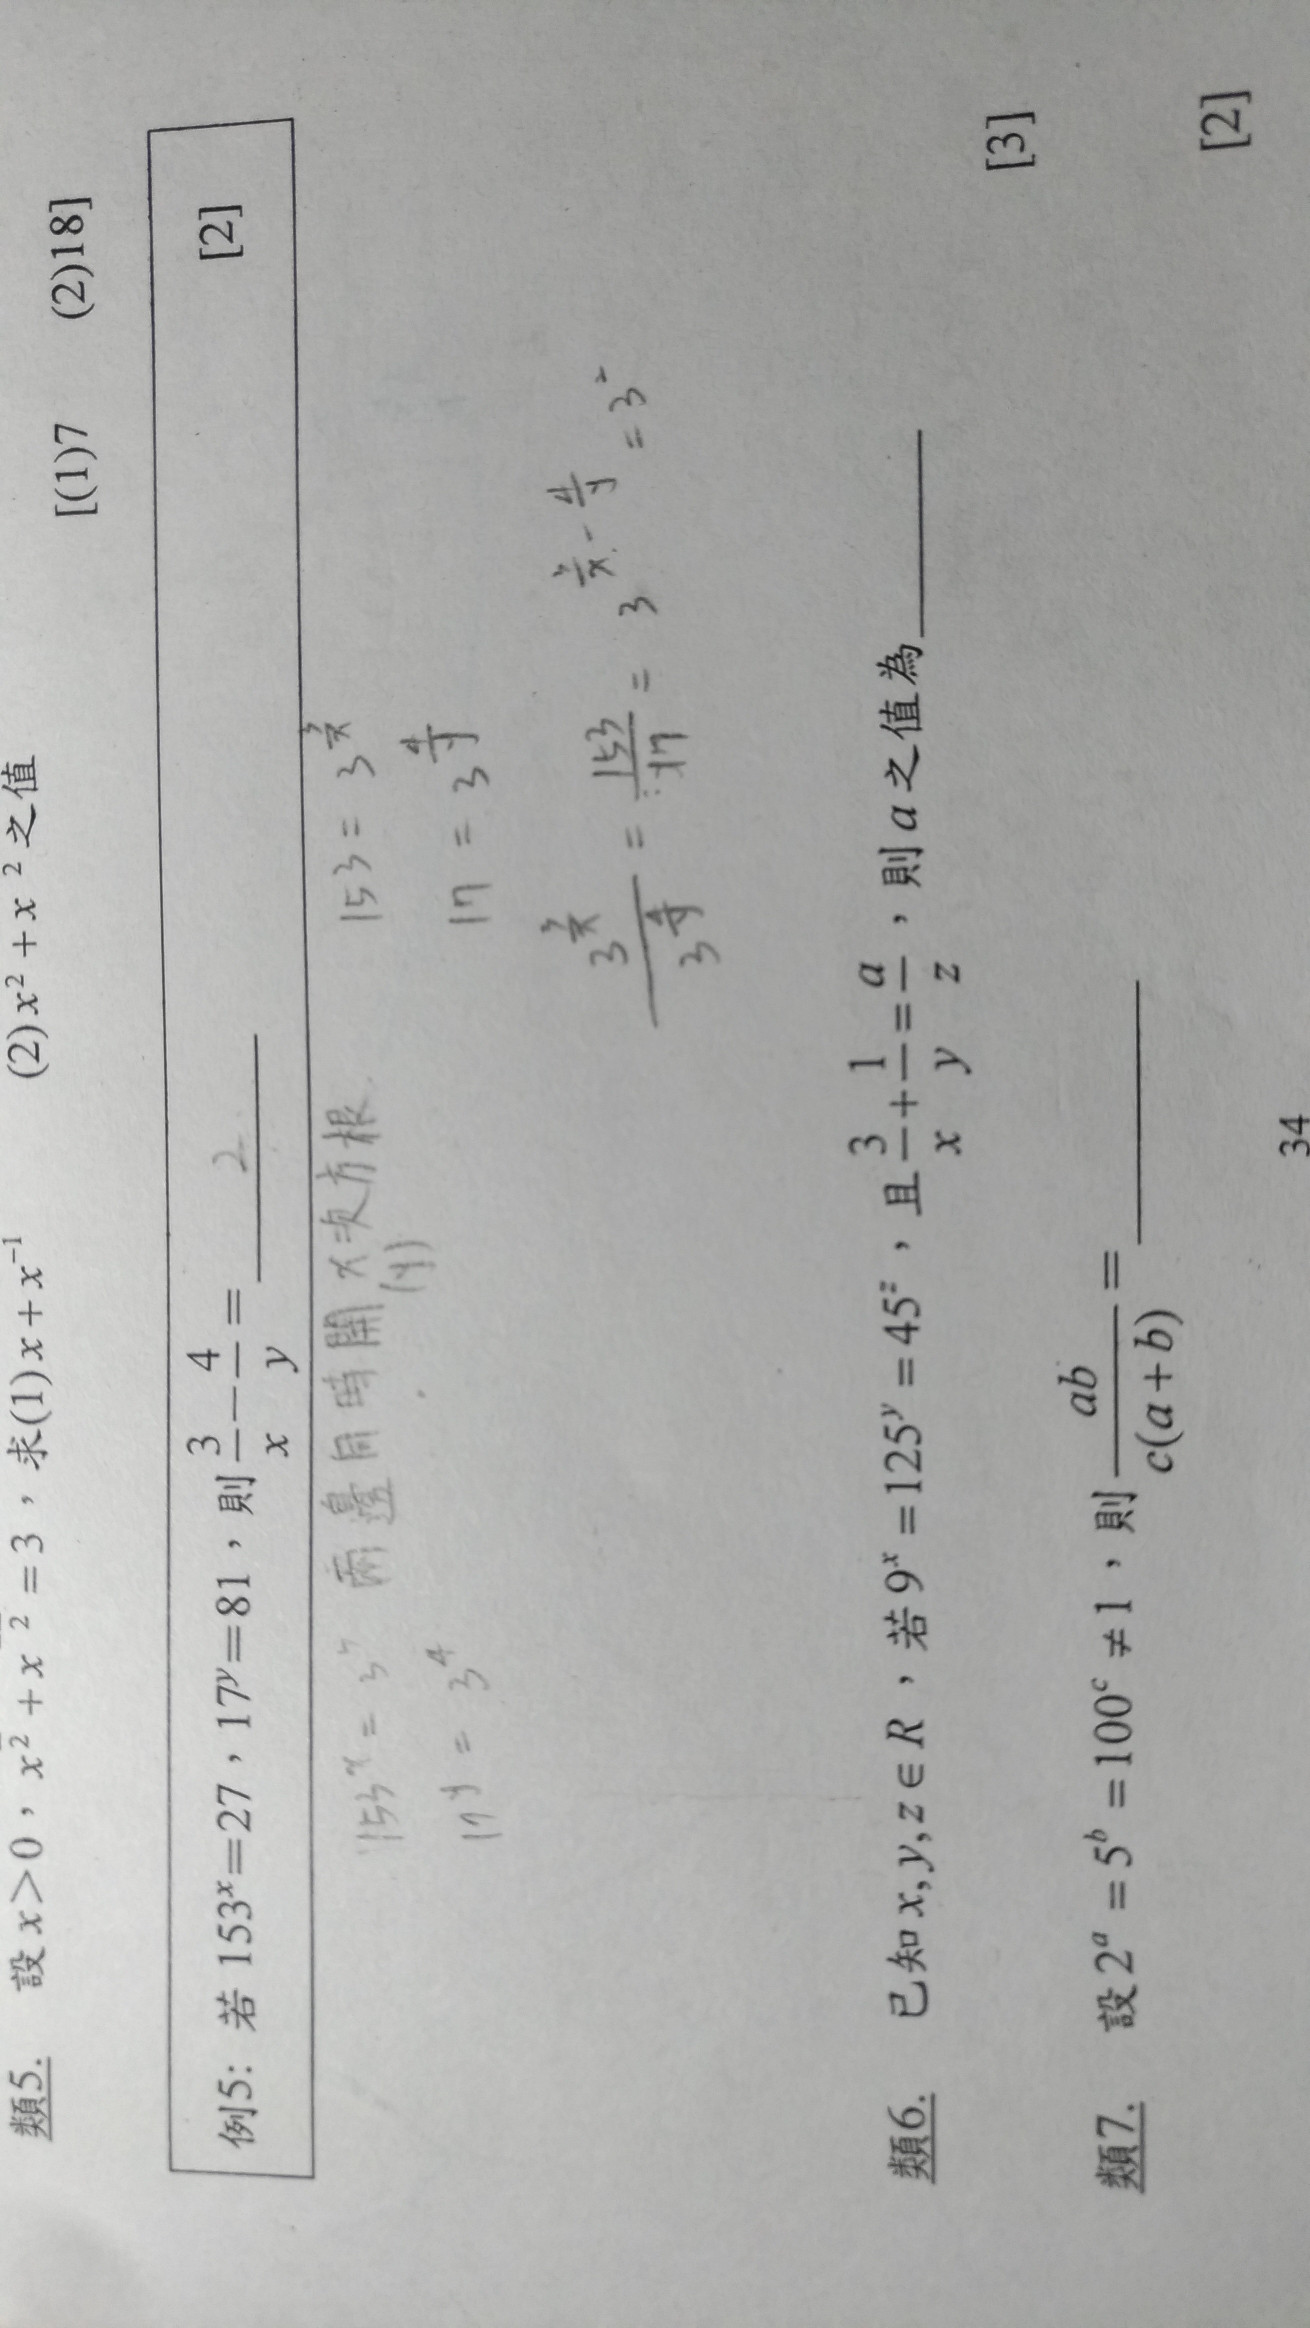 類5. 設 x>0，x² + x² = 3，求(1) x + x⁻¹ (2) x² + x² 之值
[(1)7 (2)18]
例5: 若 153ˣ=27，17ʸ=81，則 3/x − 4/y = 2 [2]
153ˣ = 3³ 兩邊同時開 x 次方根 153 = 3^(3/x)
(y)
17ʸ = 3⁴ 17 = 3^(4/y)
3^(3/x) / 3^(4/y) = 153/17 = 3^(3/x - 4/y) = 3²
類6. 已知 x, y, z ∈ R，若 9ˣ = 125ʸ = 45ᶻ，且 3/x + 1/y = a/z，則 a 之值為
[3]
類7. 設 2ᵃ = 5ᵇ = 100ᶜ ≠ 1，則 ab/c(a+b) =
[2]
34